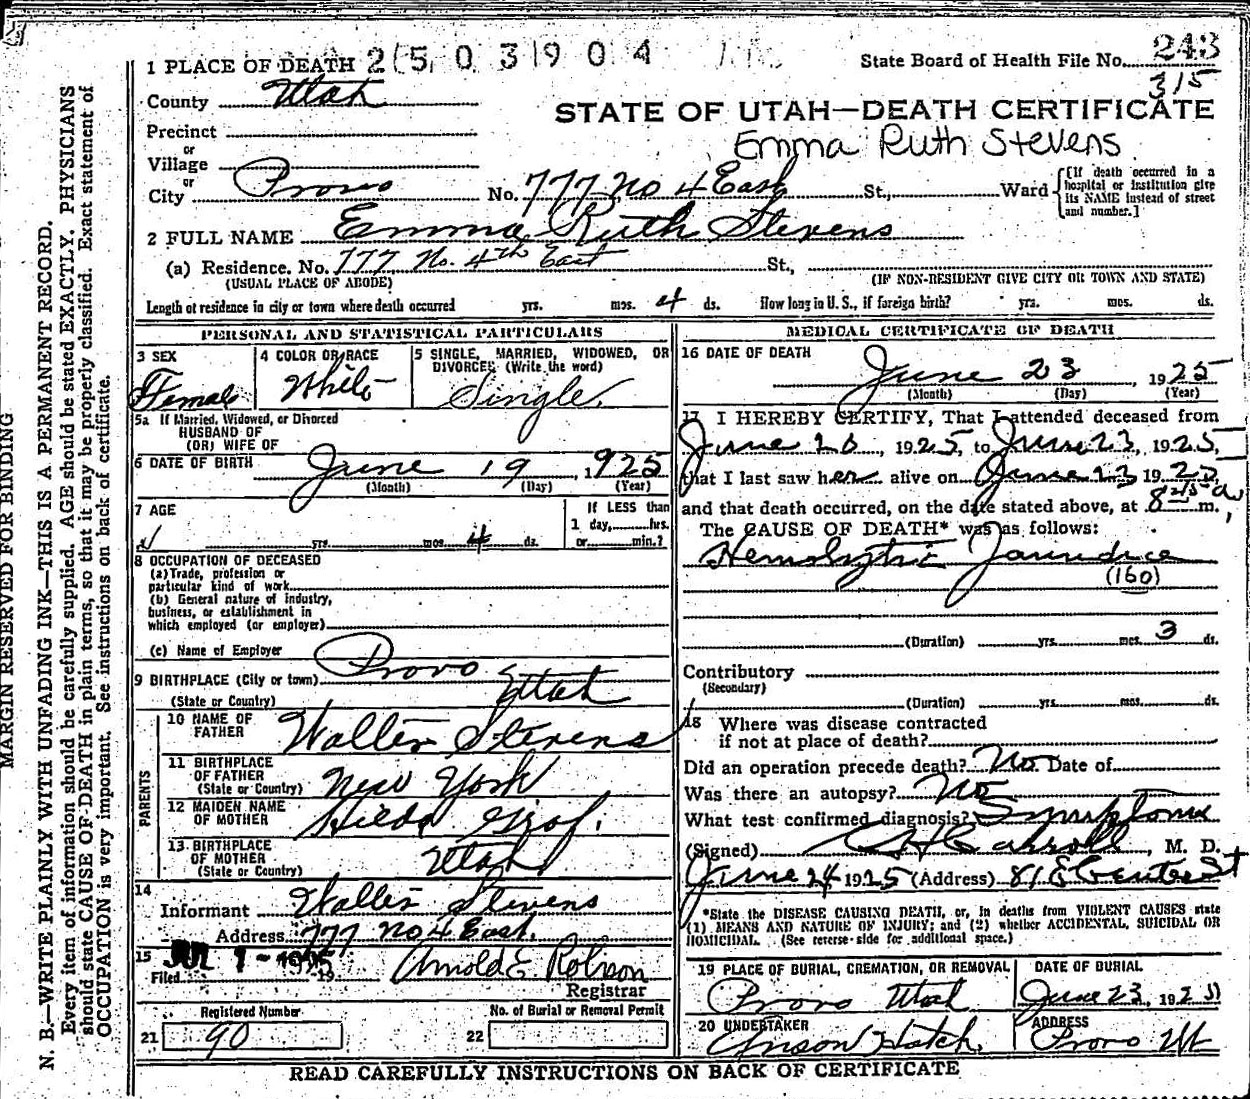 1 PLACE OF DEATH 2503904
State Board of Health File No. 243
315
County Utah
STATE OF UTAH—DEATH CERTIFICATE
Precinct
Emma Ruth Stevens
or
Village
or
City Provo No. 777 No 4 East St., Ward
[If death occurred in a hospital or institution give its NAME instead of street and number.]
2 FULL NAME Emma Ruth Stevens
(a) Residence. No. 777 No. 4th East St.,
(USUAL PLACE OF ABODE) (IF NON-RESIDENT GIVE CITY OR TOWN AND STATE)
Length of residence in city or town where death occurred yrs. mos. 4 ds. How long in U. S., if foreign birth? yrs. mos. ds.
PERSONAL AND STATISTICAL PARTICULARS
3 SEX
Female
4 COLOR OR RACE
White
5 SINGLE, MARRIED, WIDOWED, OR DIVORCED (Write the word)
Single
5a If Married, Widowed, or Divorced
HUSBAND OF
(OR) WIFE OF
6 DATE OF BIRTH June 19, 1925
(Month) (Day) (Year)
7 AGE
yrs. mos. 4 ds.
If LESS than
1 day, hrs.
or min.?
8 OCCUPATION OF DECEASED
(a) Trade, profession or
particular kind of work
(b) General nature of industry,
business, or establishment in
which employed (or employer)
(c) Name of Employer
9 BIRTHPLACE (City or town) Provo
(State or Country) Utah
PARENTS
10 NAME OF FATHER Walter Stevens
11 BIRTHPLACE OF FATHER (State or Country) New York
12 MAIDEN NAME OF MOTHER Hilda Graf.
13 BIRTHPLACE OF MOTHER (State or Country) Utah
14
Informant Walter Stevens
Address 777 No 4 East.
15
Filed JUL 1 - 1925 19
Arnold E Robison
Registrar
Registered Number
21 90
No. of Burial or Removal Permit
22
MEDICAL CERTIFICATE OF DEATH
16 DATE OF DEATH
June 23, 1925
(Month) (Day) (Year)
17 I HEREBY CERTIFY, That I attended deceased from
June 20, 1925, to June 23, 1925,
that I last saw her alive on June 23 1925,
and that death occurred, on the date stated above, at 8 m.,
The CAUSE OF DEATH* was as follows:
Hemolytic Jaundice
(160)
(Duration) yrs. mos. 3 ds.
Contributory
(Secondary)
(Duration) yrs. mos. ds.
18 Where was disease contracted
if not at place of death?
Did an operation precede death? No Date of
Was there an autopsy? No
What test confirmed diagnosis? Symptoms
(Signed) Carroll, M. D.
June 24 1925 (Address) 81 E Center St
*State the DISEASE CAUSING DEATH, or, in deaths from VIOLENT CAUSES state
(1) MEANS AND NATURE OF INJURY; and (2) whether ACCIDENTAL, SUICIDAL OR
HOMICIDAL. (See reverse side for additional space.)
19 PLACE OF BURIAL, CREMATION, OR REMOVAL
Provo Utah
DATE OF BURIAL
June 23, 1925
20 UNDERTAKER
Anson Hatch.
ADDRESS
Provo Ut
READ CAREFULLY INSTRUCTIONS ON BACK OF CERTIFICATE
MARGIN RESERVED FOR BINDING
N. B.—WRITE PLAINLY WITH UNFADING INK—THIS IS A PERMANENT RECORD.
Every item of information should be carefully supplied. AGE should be stated EXACTLY. PHYSICIANS
should state CAUSE OF DEATH in plain terms, so that it may be properly classified. Exact statement of
OCCUPATION is very important. See instructions on back of certificate.